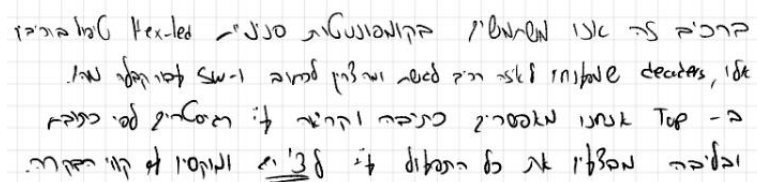 ברכיב זה אנו משתמשין בקומפוננטות Hex-led טיפול ברכיבי
אלו, decoders לאיזה רכיב לגשת ומה צריך לכתוב ו-SW עבור קבלה
ב- Top אנחנו מאפשרים כתיבה וקריאה ע"י רגיסטרים לפי כתובת
ובליבה מבצעין את כל התפעול ע"י לצ'ים ומוקסין לפי קווי הבקרה.